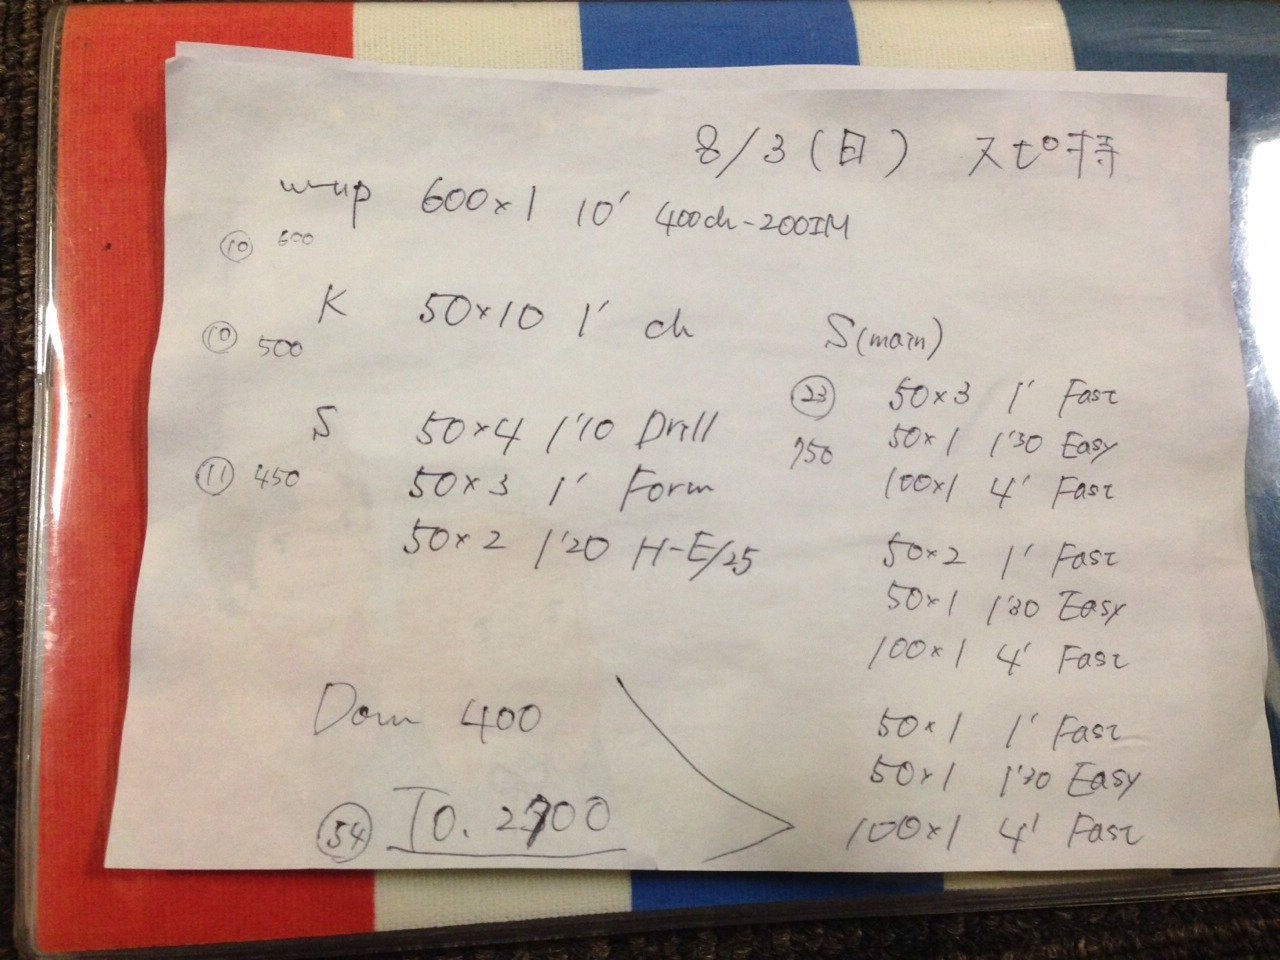 8/3(日) スピ持
w-up 600×1 10' 400ch-200IM
⑩ 600
K 50×10 1' ch
⑩ 500
S 50×4 1'10 Drill
⑪ 450 50×3 1' Form
50×2 1'20 H-E/25
Down 400
㊴ TO. 2700
S(main)
㉓ 50×3 1' Fast
750 50×1 1'30 Easy
100×1 4' Fast
50×2 1' Fast
50×1 1'30 Easy
100×1 4' Fast
50×1 1' Fast
50×1 1'30 Easy
100×1 4' Fast